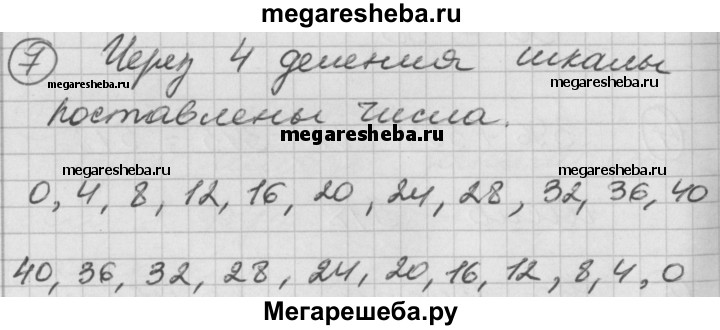 megaresheba.ru
7 Через 4 деления шкалы
megaresheba.ru megaresheba.ru
поставлены числа.
megaresheba.ru
megaresheba.ru megaresheba.ru
0, 4, 8, 12, 16, 20, 24, 28, 32, 36, 40
40, 36, 32, 28, 24, 20, 16, 12, 8, 4, 0
Мегарешеба.ру